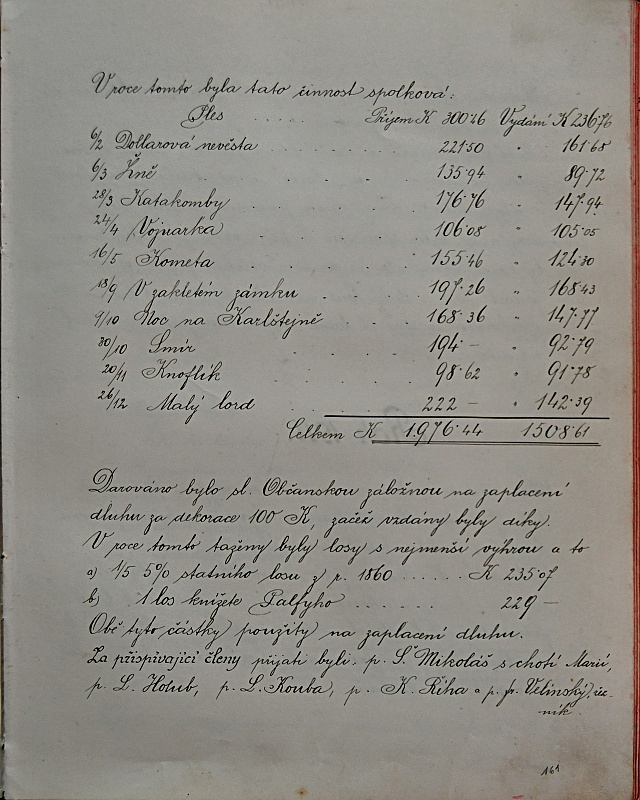 V roce tomto byla tato činnost spolková:
Ples ..... Příjem K 300·46 Vydání K 236·76
6/2 Dollarová nevěsta 221·50 " 161·68
6/3 Žně 135·94 89·72
28/3 Katakomby 176·76 " 147·94
24/4 Vojnarka 106·08 " 105·05
16/5 Kometa 155·46 " 124·30
18/9 V zakletém zámku 197·26 " 168·43
9/10 Noc na Karlštejně 168·36 " 147·77
30/10 Smír 194 – 92·79
20/11 Knoflík 98·62 " 91·78
26/12 Malý lord 222 – " 142·39
Celkem K 1.976·44 1508·61
Darováno bylo sl. Občanskou záložnou na zaplacení
dluhu za dekorace 100 K, začež vzdány byly díky.
V roce tomto taženy byly losy s nejmenší výhrou a to
a) 1/5 5% statního losu z r. 1860 ...... K 235·07
b) 1 los knížete Palfyho ....... 229 –
Obě tyto částky použity na zaplacení dluhu.
Za přispívající členy přijati byli, p. Š. Mikoláš s chotí Marií,
p. L. Holub, p. L. Kouba, p. K. Říha a p. fr. Velinský, řez-
ník.
161